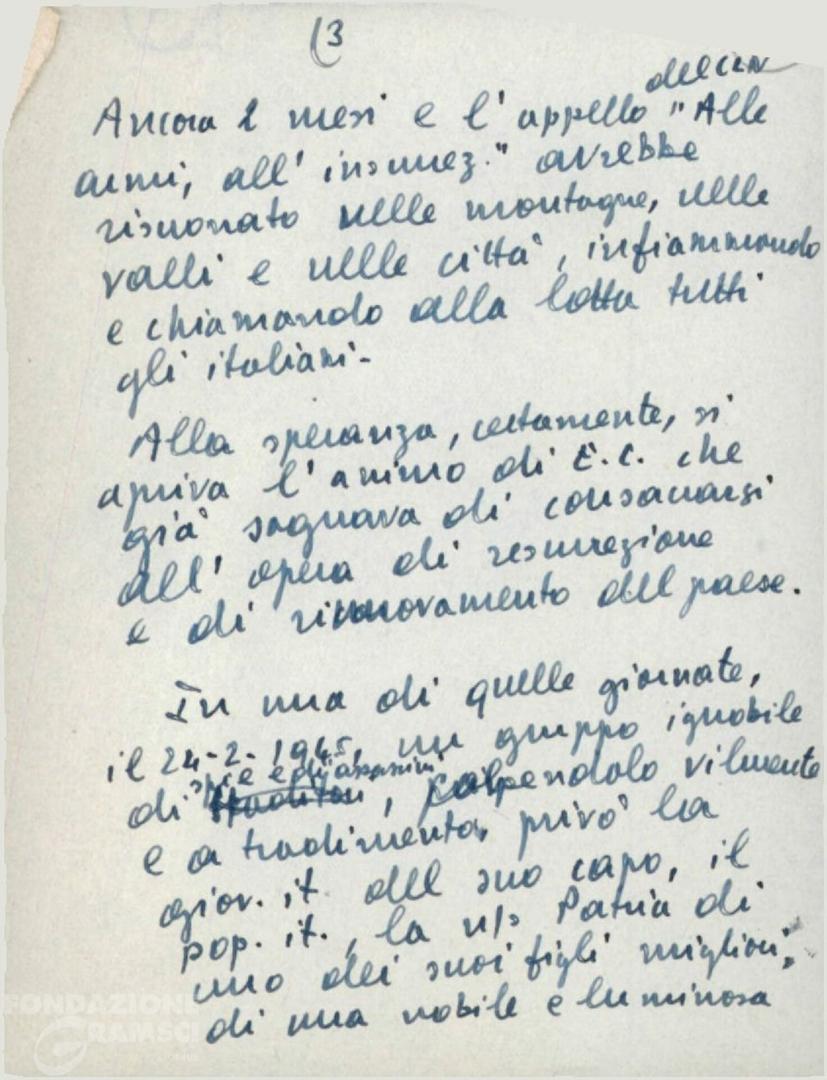 (3
del CLN
Ancora 2 mesi e l'appello "Alle
armi, all'insurrez." avrebbe
risuonato nelle montagne, nelle
valli e nelle città, infiammando
e chiamando alla lotta tutti
gli italiani-
Alla speranza, certamente, si
apriva l'animo di E.C. che
già sognava di consacrarsi
all'opera di resurrezione
e di rinnovamento del paese.
In una di quelle giornate,
il 24-2-1945, un gruppo ignobile
spie e di assassini
di traditori, colpendolo vilmente
e a tradimento, privò la
giov. it. del suo capo, il
pop. it., la n/s Patria di
uno dei suoi figli migliori,
di una nobile e luminosa
FONDAZIONE
GRAMSCI